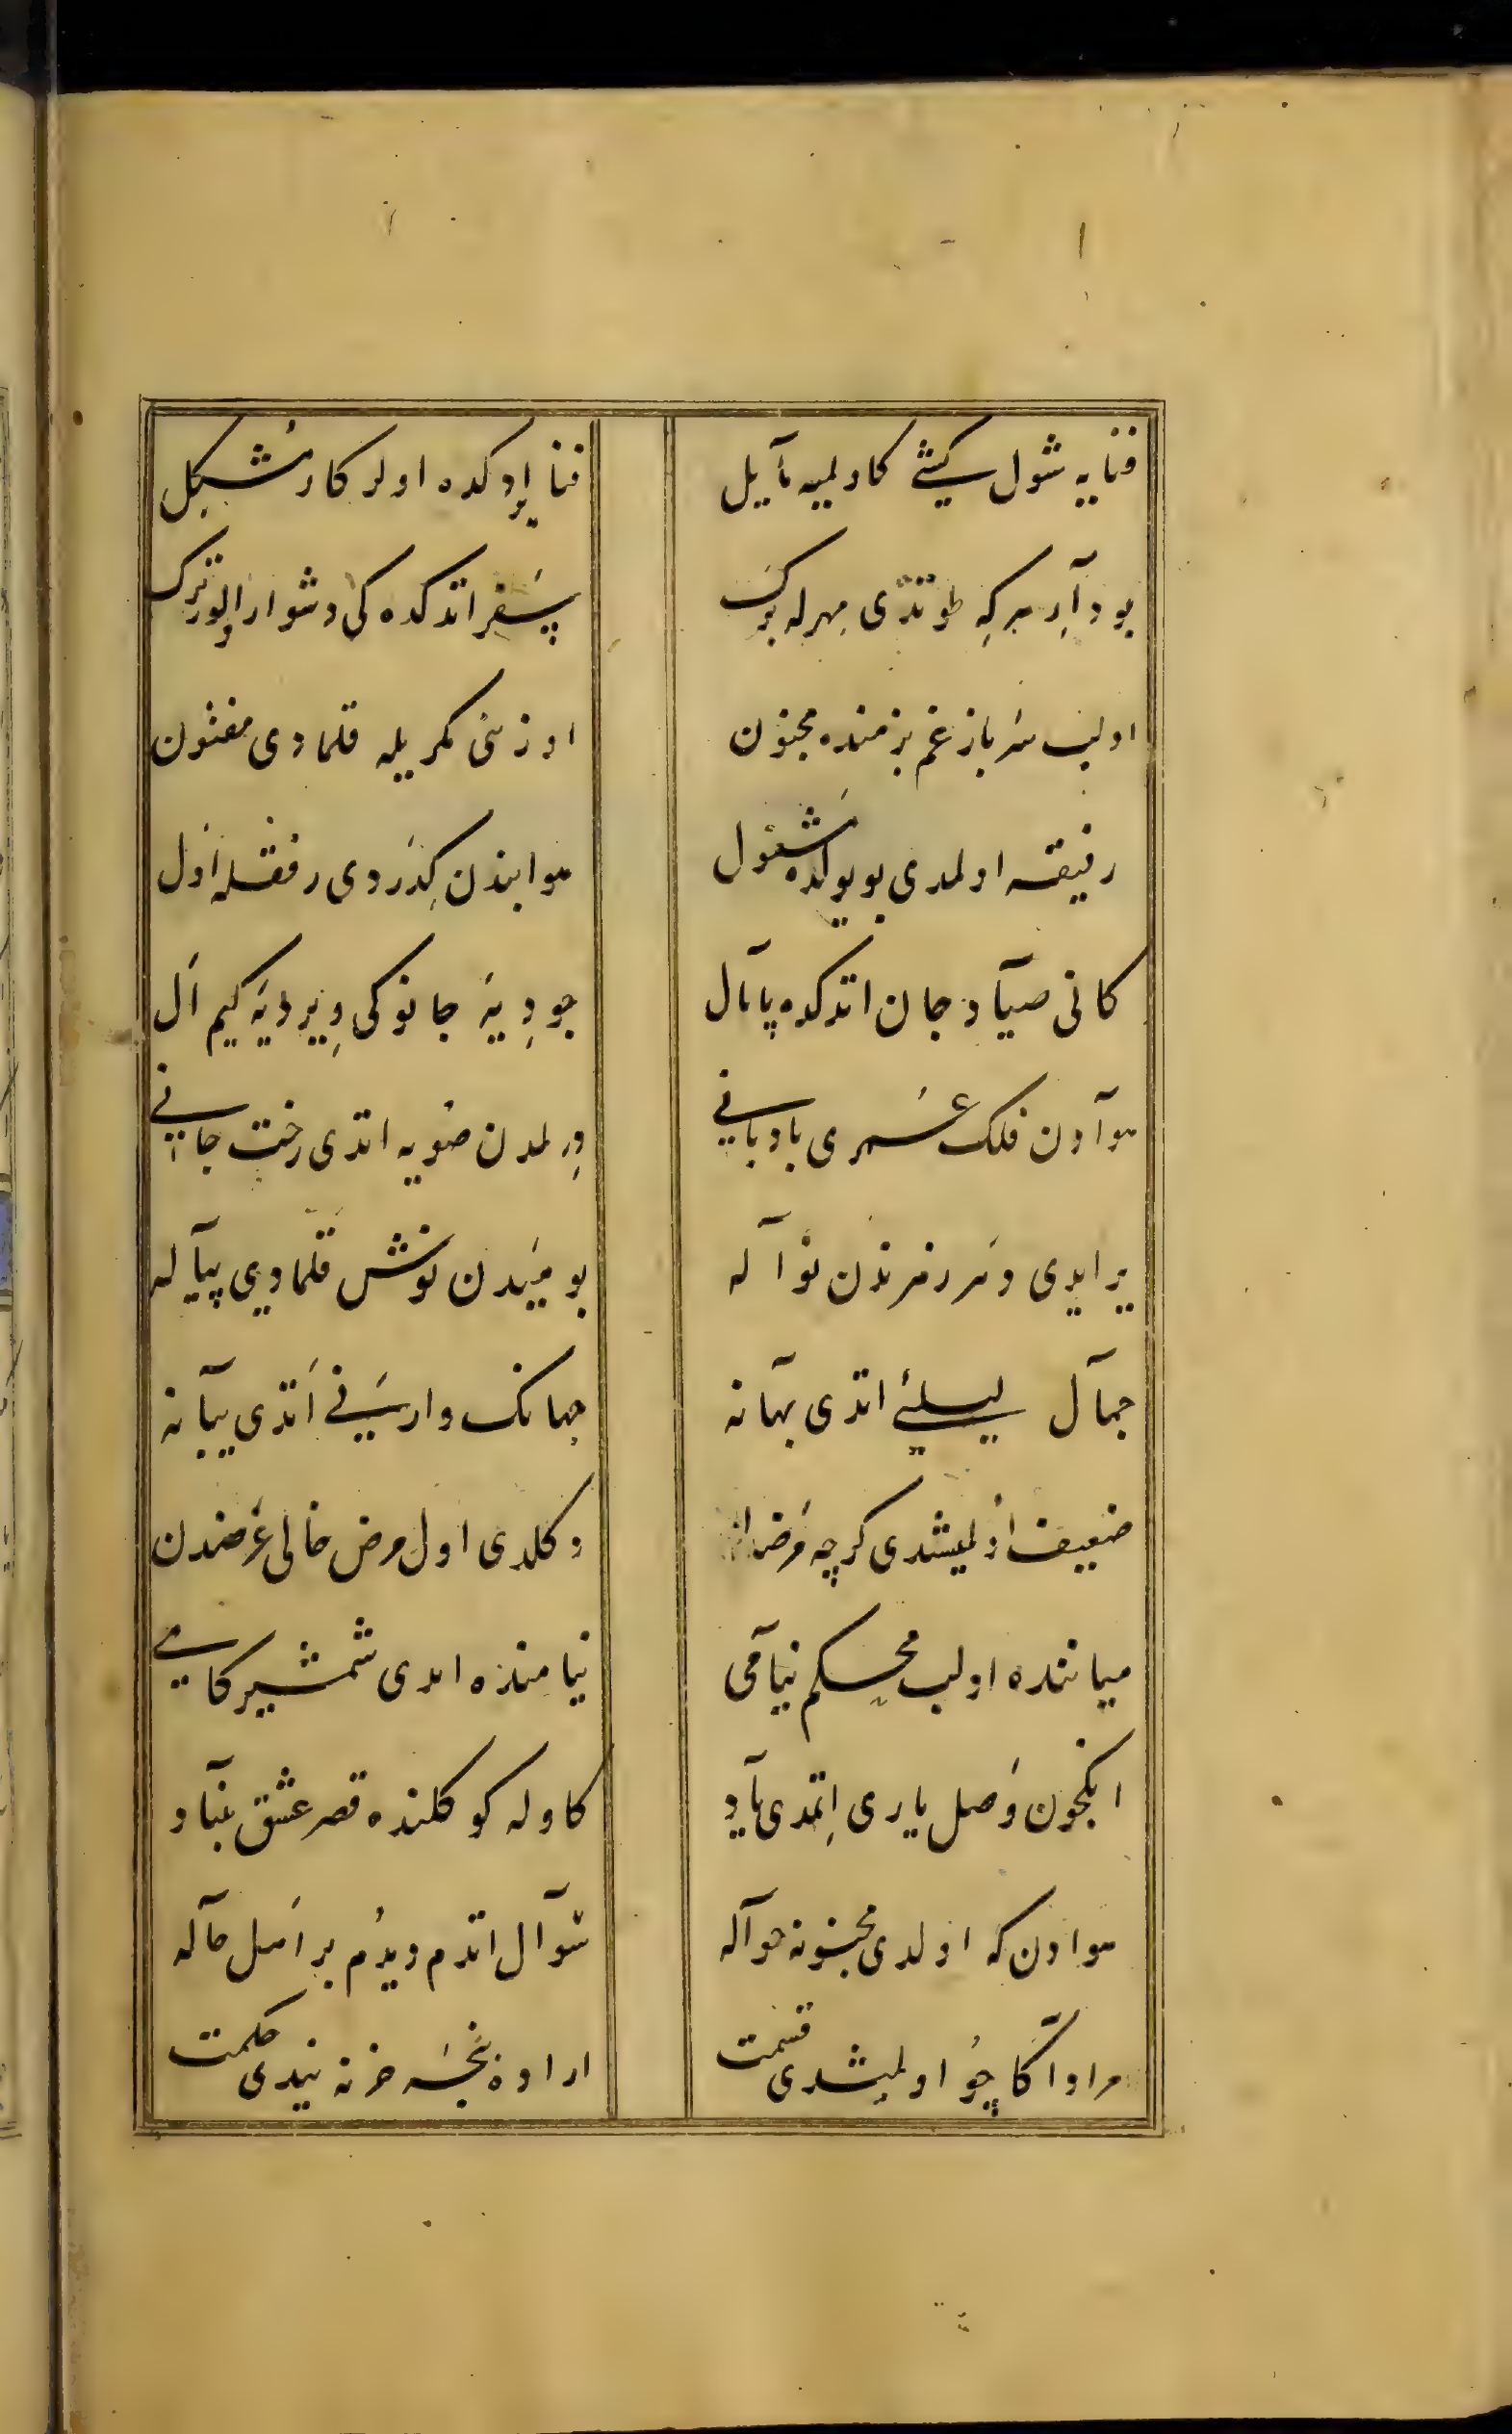 فنایه شول کیشی کاولمیه مآیل فنا یولکده اولر کار مُشکل
بو دآرِ هر کِه طوتدی مهرله برک پسَفر اتدکده کی دشوار اولور ترک
اولب سَر باز غم بزمنده مجنون اوزنی مکریله قلمادی مفتون
رفیقه اولمدی بو یولده مَشغول هوابندن کِذَردی رفقله اَول
کانی صیآد جان اتدکده پامال جو دِیَه جانوکی وِیر دیَه کیم اَل
هوآدن فلک عُمری بادبانی وِرلمدن صُویه اتدی رخت جانی
یر ایدی وَرد فرندن نوآله بو مَیدن نوش قلمادی پیآله
جمآل لیلیٔ اتدی بهآنه جهانک وارسَنی اَتدی یبآنه
ضعیف اُولمیشدی کرچه مَرضدن دکلدی اول مرض خالی غَرضدن
میاننده اولب محکم نیآمی نیامنده ایدی شمشیر کامی
انکچون وَصل یاری اِتمدی یآد کاوله کوکلنده قصر عشق بنیآد
هوادن که اولدی مجنونه حوآله سُوآل اتدم ویدُم بر اَهل حآله
مراد آکا چُو اولمیشدی قسمت اراده نیجَه خزنه نیدی حکمت